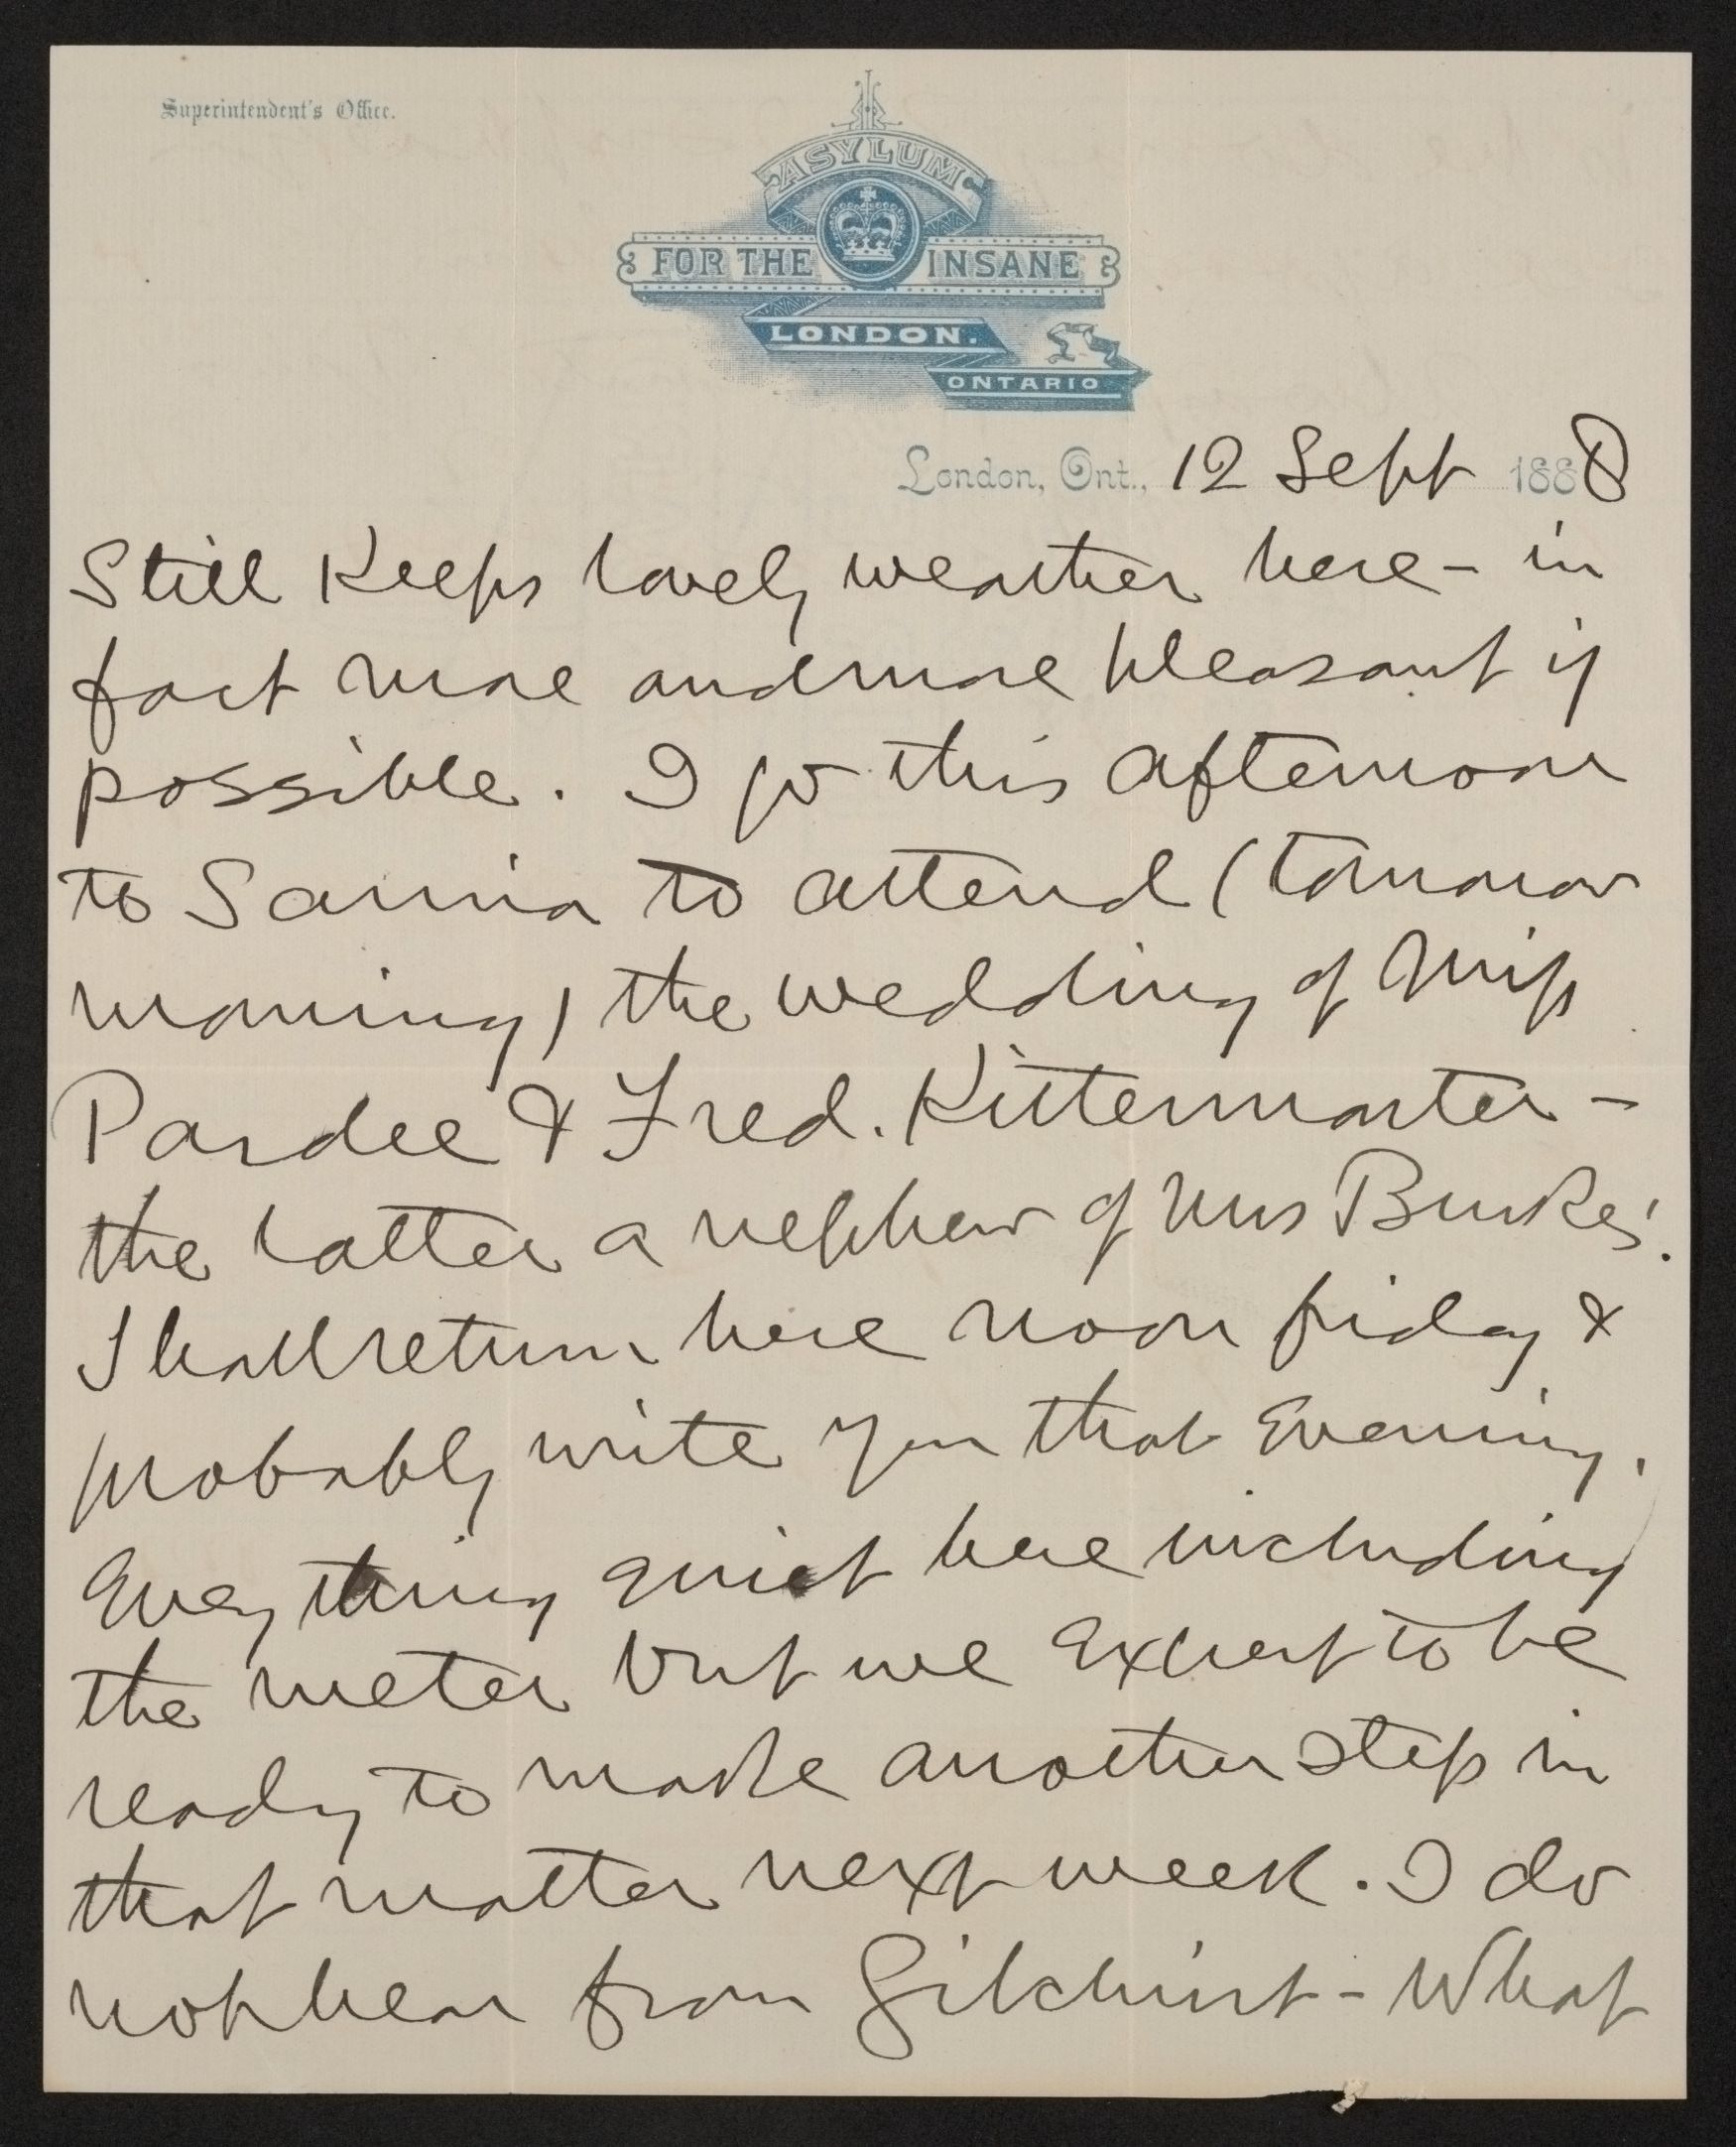 Superintendent's Office.
ASYLUM
FOR THE INSANE
LONDON.
ONTARIO
London, Ont., 12 Sept 1888
Still keeps lovely weather here - in
fact more and more pleasant if
possible. I go this afternoon
to Sarnia to attend (tomorrow
morning) the wedding of Miss
Pardee & Fred. Kittermaster -
the latter a nephew of Mrs Burkes'.
Shall return here noon friday &
probably write you that Evening.
Every thing quiet here including
the meter but we expect to be
ready to make another step in
that matter next week. I do
not hear from Gilchrist - What